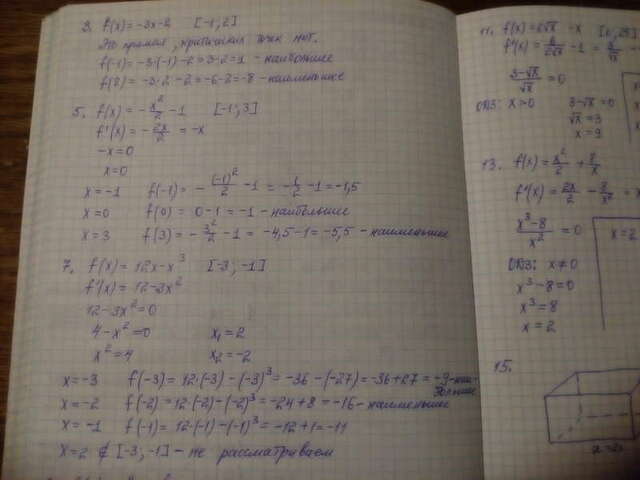 3. f(x) = -3x-2 [-1; 2]
Это прямая, критических точек нет.
f(-1) = -3·(-1)-2 = 3-2 = 1 - наибольшее
f(2) = -3·2-2 = -6-2 = -8 - наименьшее
5. f(x) = -x²/2 - 1 [-1; 3]
f'(x) = -2x/2 = -x
-x=0
x=0
x=-1 f(-1) = -(-1)²/2 - 1 = -1/2 - 1 = -1,5
x=0 f(0) = 0-1 = -1 - наибольшее
x=3 f(3) = -3²/2 - 1 = -4,5-1 = -5,5 - наименьшее
7. f(x) = 12x-x³ [-3; -1]
f'(x) = 12-3x²
12-3x²=0
4-x²=0 x₁=2
x²=4 x₂=-2
x=-3 f(-3) = 12·(-3)-(-3)³ = -36-(-27) = -36+27 = -9-наи-
большее
x=-2 f(-2) = 12·(-2)-(-2)³ = -24+8 = -16-наименьшее
x=-1 f(-1) = 12·(-1)-(-1)³ = -12+1 = -11
x=2 ∉ [-3; -1] - не рассматриваем
11. f(x) = 6√x - x
f'(x) = 6/2√x - 1 = 3/√x
3-√x/√x = 0
ОДЗ: x>0 3-√x=0
√x=3
x=9
13. f(x) = x²/2 + 8/x
f'(x) = 2x/2 - 8/x² =
x³-8/x² = 0 x=2
ОДЗ: x≠0
x³-8=0
x³=8
x=2
15.